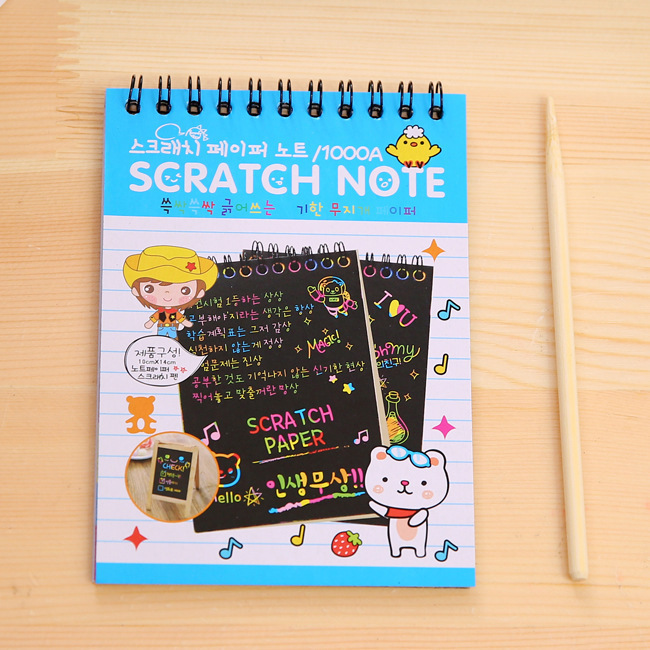 스크래치 페이퍼 노트 /1000A
SCRATCH NOTE
쓱싹쓱싹 긁어쓰는 기한 무지개 페이퍼
1등하는 상상
라는 생각은 항상
학습계획표는 그저 감상
실천하지 않는게 정상
문제는 진상
공부한 것도 기억나지 않는 신기한 현상
찍어놓고 맞출꺼란 망상
Magic!
SCRATCH
PAPER
Hello
인생무상!!
I U
Oh my
제품구성!
10cmX14cm
노트페이퍼
스크래치 펜
CHECK!